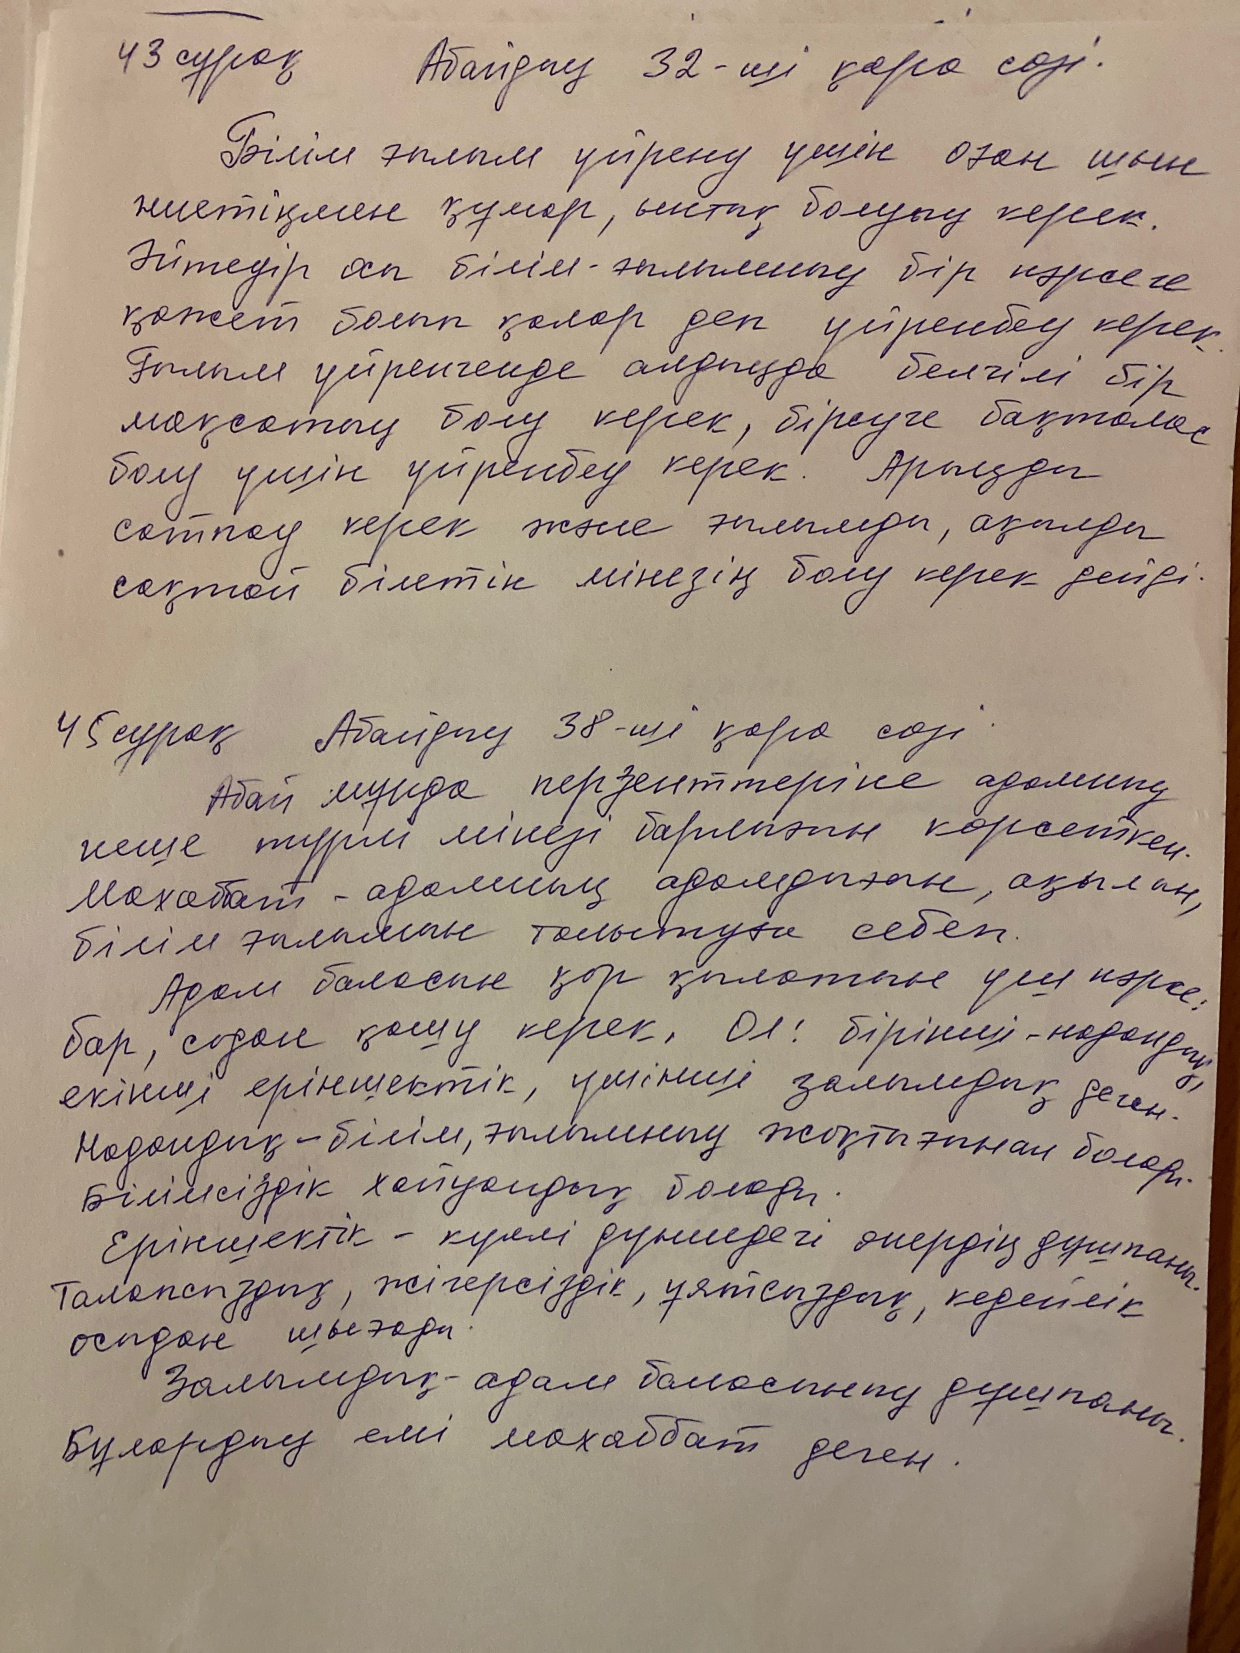 43 сұрақ Абайдың 32-ші қара сөзі.
Білім ғылым үйрену үшін оған шын
ниетіңмен құмар, ынтық болуың керек.
Әйтеуір осы білім-ғылымның бір нәрсеге
қажет болып қалар деп үйренбеу керек.
Ғылым үйренгенде алдыңда белгілі бір
мақсатың болу керек, біреуге бақталас
болу үшін үйренбеу керек. Арыңды
сатпау керек және ғылымды, ақылды
сақтай білетін мінезің болу керек дейді.
45 сұрақ Абайдың 38-ші қара сөзі.
Абай мұнда перзенттеріне адамның
неше түрлі мінезі барлығын көрсеткен.
Махаббат - адамның адамдығын, ақылын,
білім ғылымын толытуға себеп.
Адам баласын қор қылатын үш нәрсе:
бар, содан қашу керек. Ол: бірінші-надандық,
екінші еріншектік, үшінші залымдық деген.
Надандық - білім, ғылымның жоқтығынан болады.
Білімсіздік хайуандық болады.
Еріншектік - күллі дүниедегі өнердің дұшпаны.
Талапсыздық, жігерсіздік, ұятсыздық, кедейлік
осыдан шығады.
Залымдық - адам баласының дұшпаны.
Бұлардың емі махаббат деген.